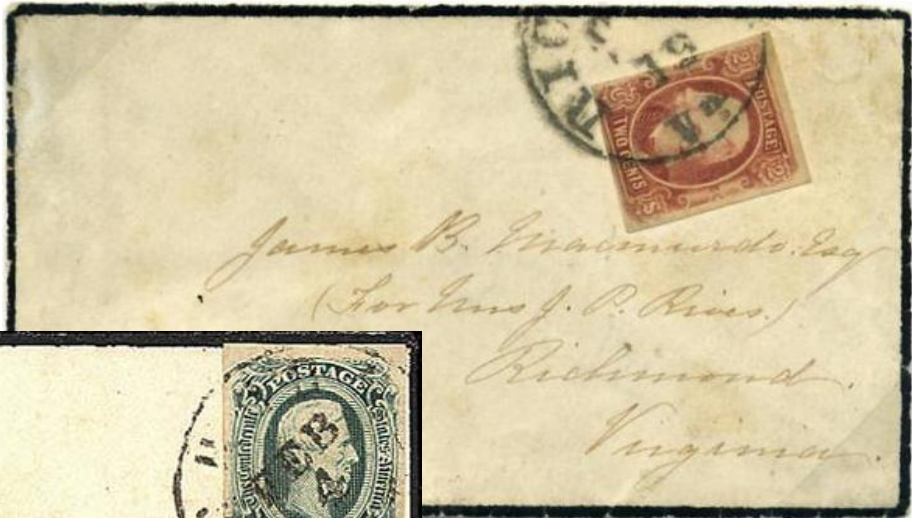 RIC
SE
VA
POSTAGE
TWO CENTS
James B. Macmurdo. Esq
(For Mrs J. P. Rives.)
Richmond.
Virginia.
POSTAGE
The Confederate States America
FEB
4